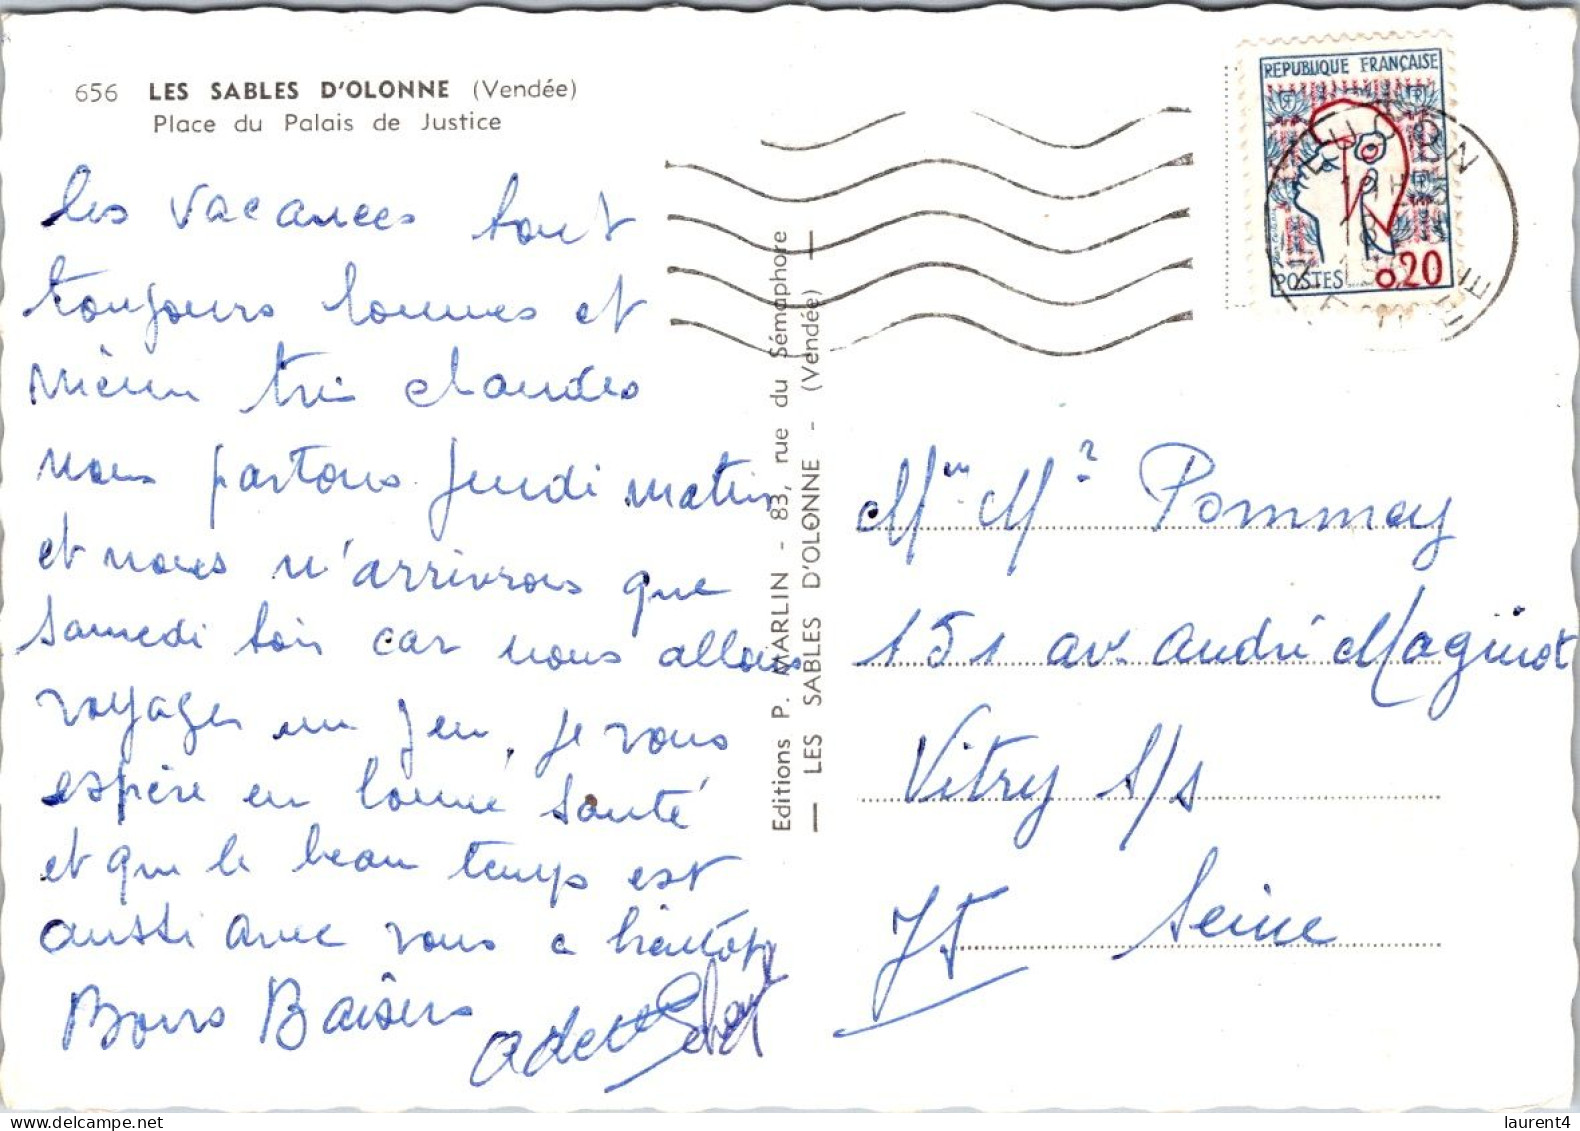 656 LES SABLES D'OLONNE (Vendée)
Place du Palais de Justice
les vacances sont
toujours bonnes et
même très chaudes
nous partons Jeudi matin
et nous n'arrivrons que
samedi soir car nous allons
voyager un peu, je vous
espère en bonne santé
et que le beau temps est
aussi avec vous a bientôt
Bons Baisers
Editions P. MARLIN - 83, rue du Sémaphore
— LES SABLES D'OLONNE - (Vendée) —
REPUBLIQUE FRANÇAISE
POSTES 0,20
Mr Me Pommay
151 av. andré Maginot
Vitry s/s
Seine
laurent4